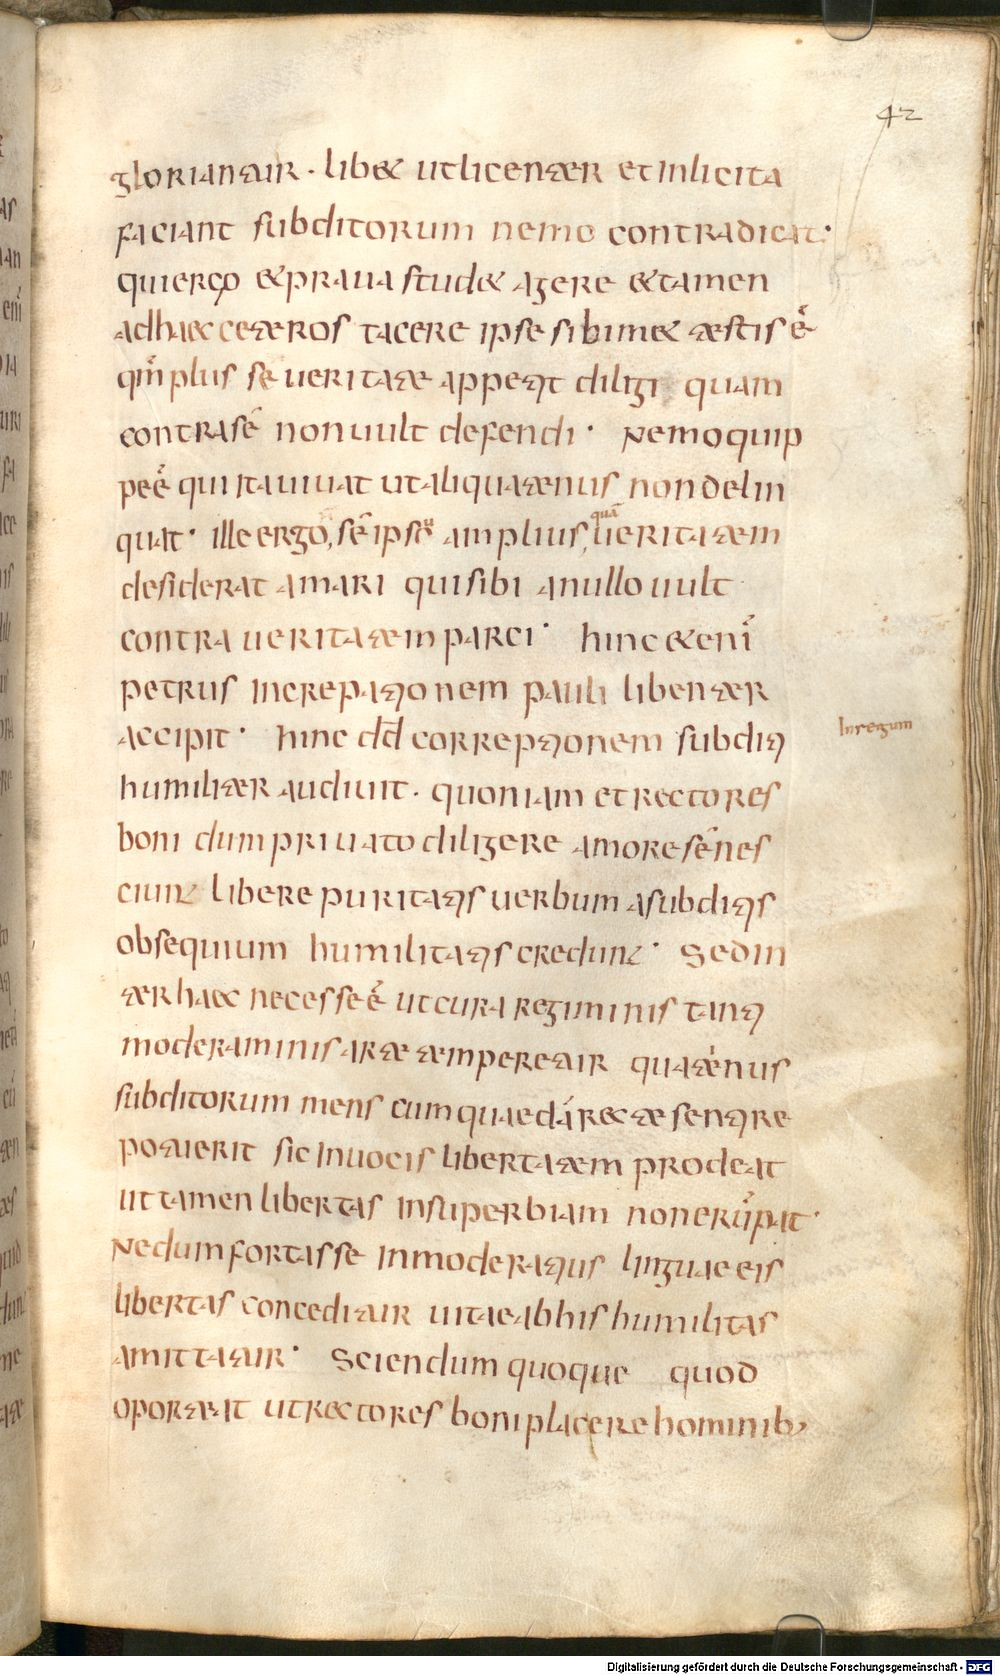 42
gloriantur · libet ut licenter et inlicita
faciant subditorum nemo contradicat·
qui ergo et praua studet agere et tamen
ad haec ceteros tacere ipse sibimet testis ē
qm̄ plus sē ueritate appetit diligi quam
contra sē non uult defendi · Nemo quip
pe ē qui ita uiuat ut aliquatenus non delin
quat · ille ergo, sē ipsū amplius, quā ueritatem
desiderat amari qui sibi a nullo uult
contra ueritatem parci · hinc etenī
petrus increpationem pauli libenter
accipit · hinc dd̄ correptionem subditi
In regum
humiliter audiuit · quoniam et rectores
boni dum priuato diligere amore sē nes
ciunt libere puritatis uerbum a subditis
obsequium humilitatis credunt · Sed in
ter haec necesse ē ut cura regiminis tanti
moderaminis arte temperetur quatenus
subditorum mens cum quaedā recte sentire
potuerit sic in uocis libertatem prodeat
ut tamen libertas in superbiam non erūpat ·
Ne dum fortasse inmoderatius linguae eis
libertas conceditur uitae ab his humilitas
amittatur · Sciendum quoque quod
oportet ut rectores boni placere hominib;
Digitalisierung gefördert durch die Deutsche Forschungsgemeinschaft - DFG